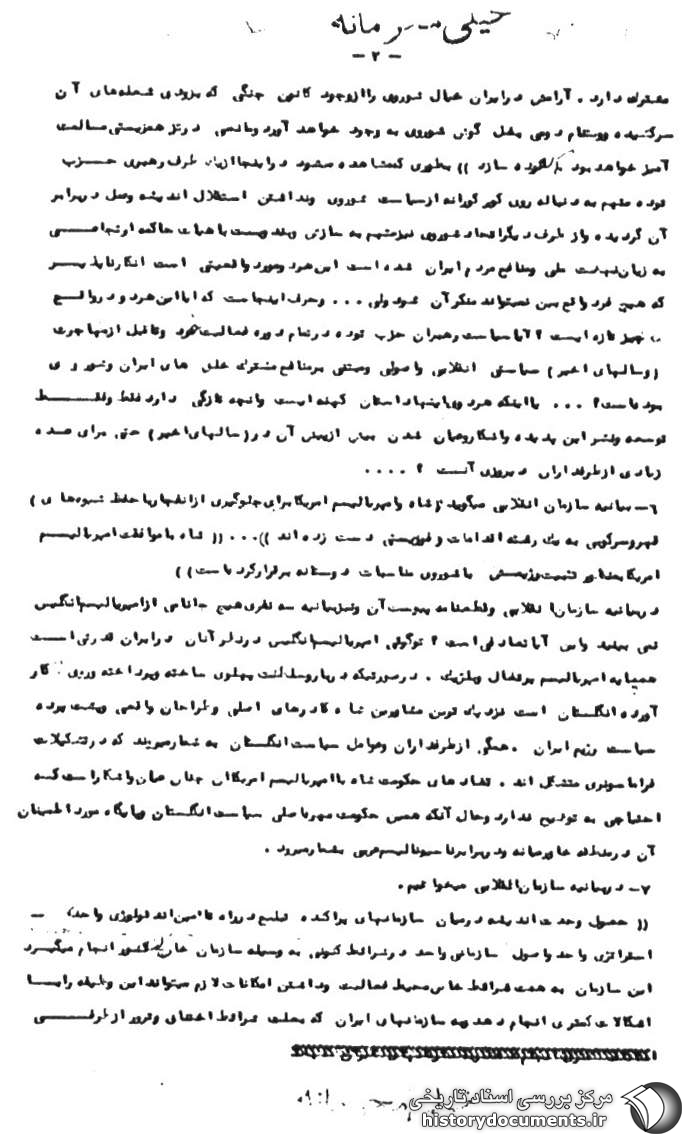 خیلی محرمانه
- ۲ -
مشترک دارد . آرامش در ایران خیال شوروی را از وجود کانون جنگی که بزودی شعله‌های آن
سرکشیده وویتنام دومی بغل گوش شوروی به وجود خواهد آورد ومانعی در تز همزیستی مسالمت
آمیز خواهد بود آسوده سازد )) بطوری که مشاهده میشود در اینجا از یک طرف رهبری حزب
توده متهم به دنباله روی کورکورانه از سیاست شوروی ونداشتن استقلال اندیشه وعمل در برابر
آن گردیده واز طرف دیگر اتحاد شوروی نیز متهم به سازش وبند وبست با هیات حاکمه ارتجاعی
به زیان نهضت ملی ومنافع مردم ایران شده است این هر دو مورد واقعیتی است انکار ناپذیر
که هیچ فرد واقع بین نمیتواند منکر آن شود ولی ... وحرف اینجاست که ایا این هر دو در واقع
چیز تازه ایست ؟ آیا سیاست رهبران حزب توده در تمام دوره فعالیت خود وقبل از مهاجرت
( وسالهای اخیر ) سیاستی انقلابی واصولی ومبتنی بر منافع مشترک خلق های ایران وشوروی
بوده است ؟ ... با اینکه هر دوی اینها داستان کهنه ایست وانچه تازگی دارد فقط وفقط
توسعه ونشر این پدیده واشکار وعیان شدن بیش از پیش آن در ( سالهای اخیر ) حتی برای عده
زیادی از طرفداران دیروزی آنست ؟ ....
۶- بیانیه سازمان انقلابی میگوید : شاه وامپریالیسم امریکا برای جلوگیری از انفجار با حفظ شیوه های )
قهر وسرکوبی به یک رشته اقدامات و رفرمیستی دست زده اند )) ... (( شاه با موافقت امپریالیسم
امریکا بمنظور تثبیت رژیمش با شوروی مناسبات دوستانه برقرار کرده است ))
در بیانیه سازمان انقلابی وقطعنامه پیوست آن ونیز بیانیه سه نفری هیچ جا نامی از امپریالیسم انگلیس
نمی بینید واین آیا تصادفی است ؟ توگوئی امپریالیسم انگلیس در نظر آنان در ایران قدرتی است
همپایه امپریالیسم پرتغال وبلژیک . در صورتیکه دربار وسلطنت پهلوی ساخته وپرداخته وروی کار
آورده انگلستان است نزدیک ترین مشاورین شاه کادرهای اصلی وطراحان واقعی وپشت پرده
سیاست رژیم ایران . همگی از طرفداران وعوامل سیاست انگلستان به شمار میروند که در تشکیلات
فراماسونری متشکل اند . تضاد های حکومت شاه با امپریالیسم امریکا آن چنان عیان واشکار است که
احتیاجی به توضیح ندارد وحال آنکه همین حکومت مهره اصلی سیاست انگلستان وپایگاه مورد اطمینان
آن در منطقه خاورمیانه ودر برابر ناسیونالیسم عربی بشمار میرود .
۷- در بیانیه سازمان انقلابی میخوانیم .
(( حصول وحدت اندیشه در میان سازمانهای پراکنده تبلیغ در راه تامین اندئولوژی واحد -
استراتژی واحد واصول سازمانی واحد در شرائط کنونی به وسیله سازمان خارج کشور انجام میگیرد
این سازمان به همت شرائط خاص محیط فعالیت وداشتن امکانات لازم میتواند این وظیفه را با
اشکالات کمتری انجام دهد وبه سازمانهای ایران که بعلت شرائط اختفای وترور از طرفی
مرکز بررسی اسناد تاریخی
historydocuments.ir